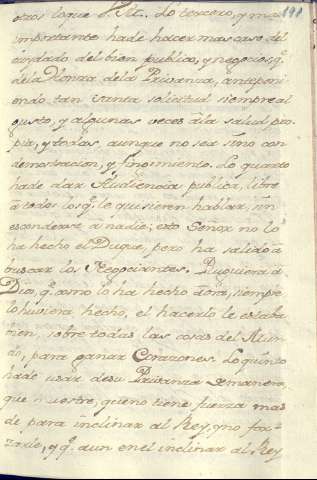 191
otros lo que V. Ex. Lo tercero, y mas
importante ha de hacer mas caso del
cuydado del bien publico, y negocios q.
de la Honra de la Privanza, anteponi
endo tan santa solicitud siempre al
gusto, y algunas veces à la salud pro
pia, y todas, aunque no sea sino con
demostracion, y fingimiento. Lo quarto
ha de dar Audiencia publica, libre
à todos los q. le quisieren hablar, sin
esconderse à nadie; esto Señor no lo
ha hecho el Duque, pero ha salido à
buscar los Negociantes. Pluguiera à
Dios, q. como lo ha hecho aora, siempre
lo huviera hecho, el hacerlo le estaba
bien, sobre todas las cosas del Mun
do, para ganar Corazones. Lo quinto
ha de usar de su Privanza de manera,
que muestre, que no tiene fuerza mas
de para inclinar al Rey, y no for=
zarle, y q. aun en el inclinar al Rey